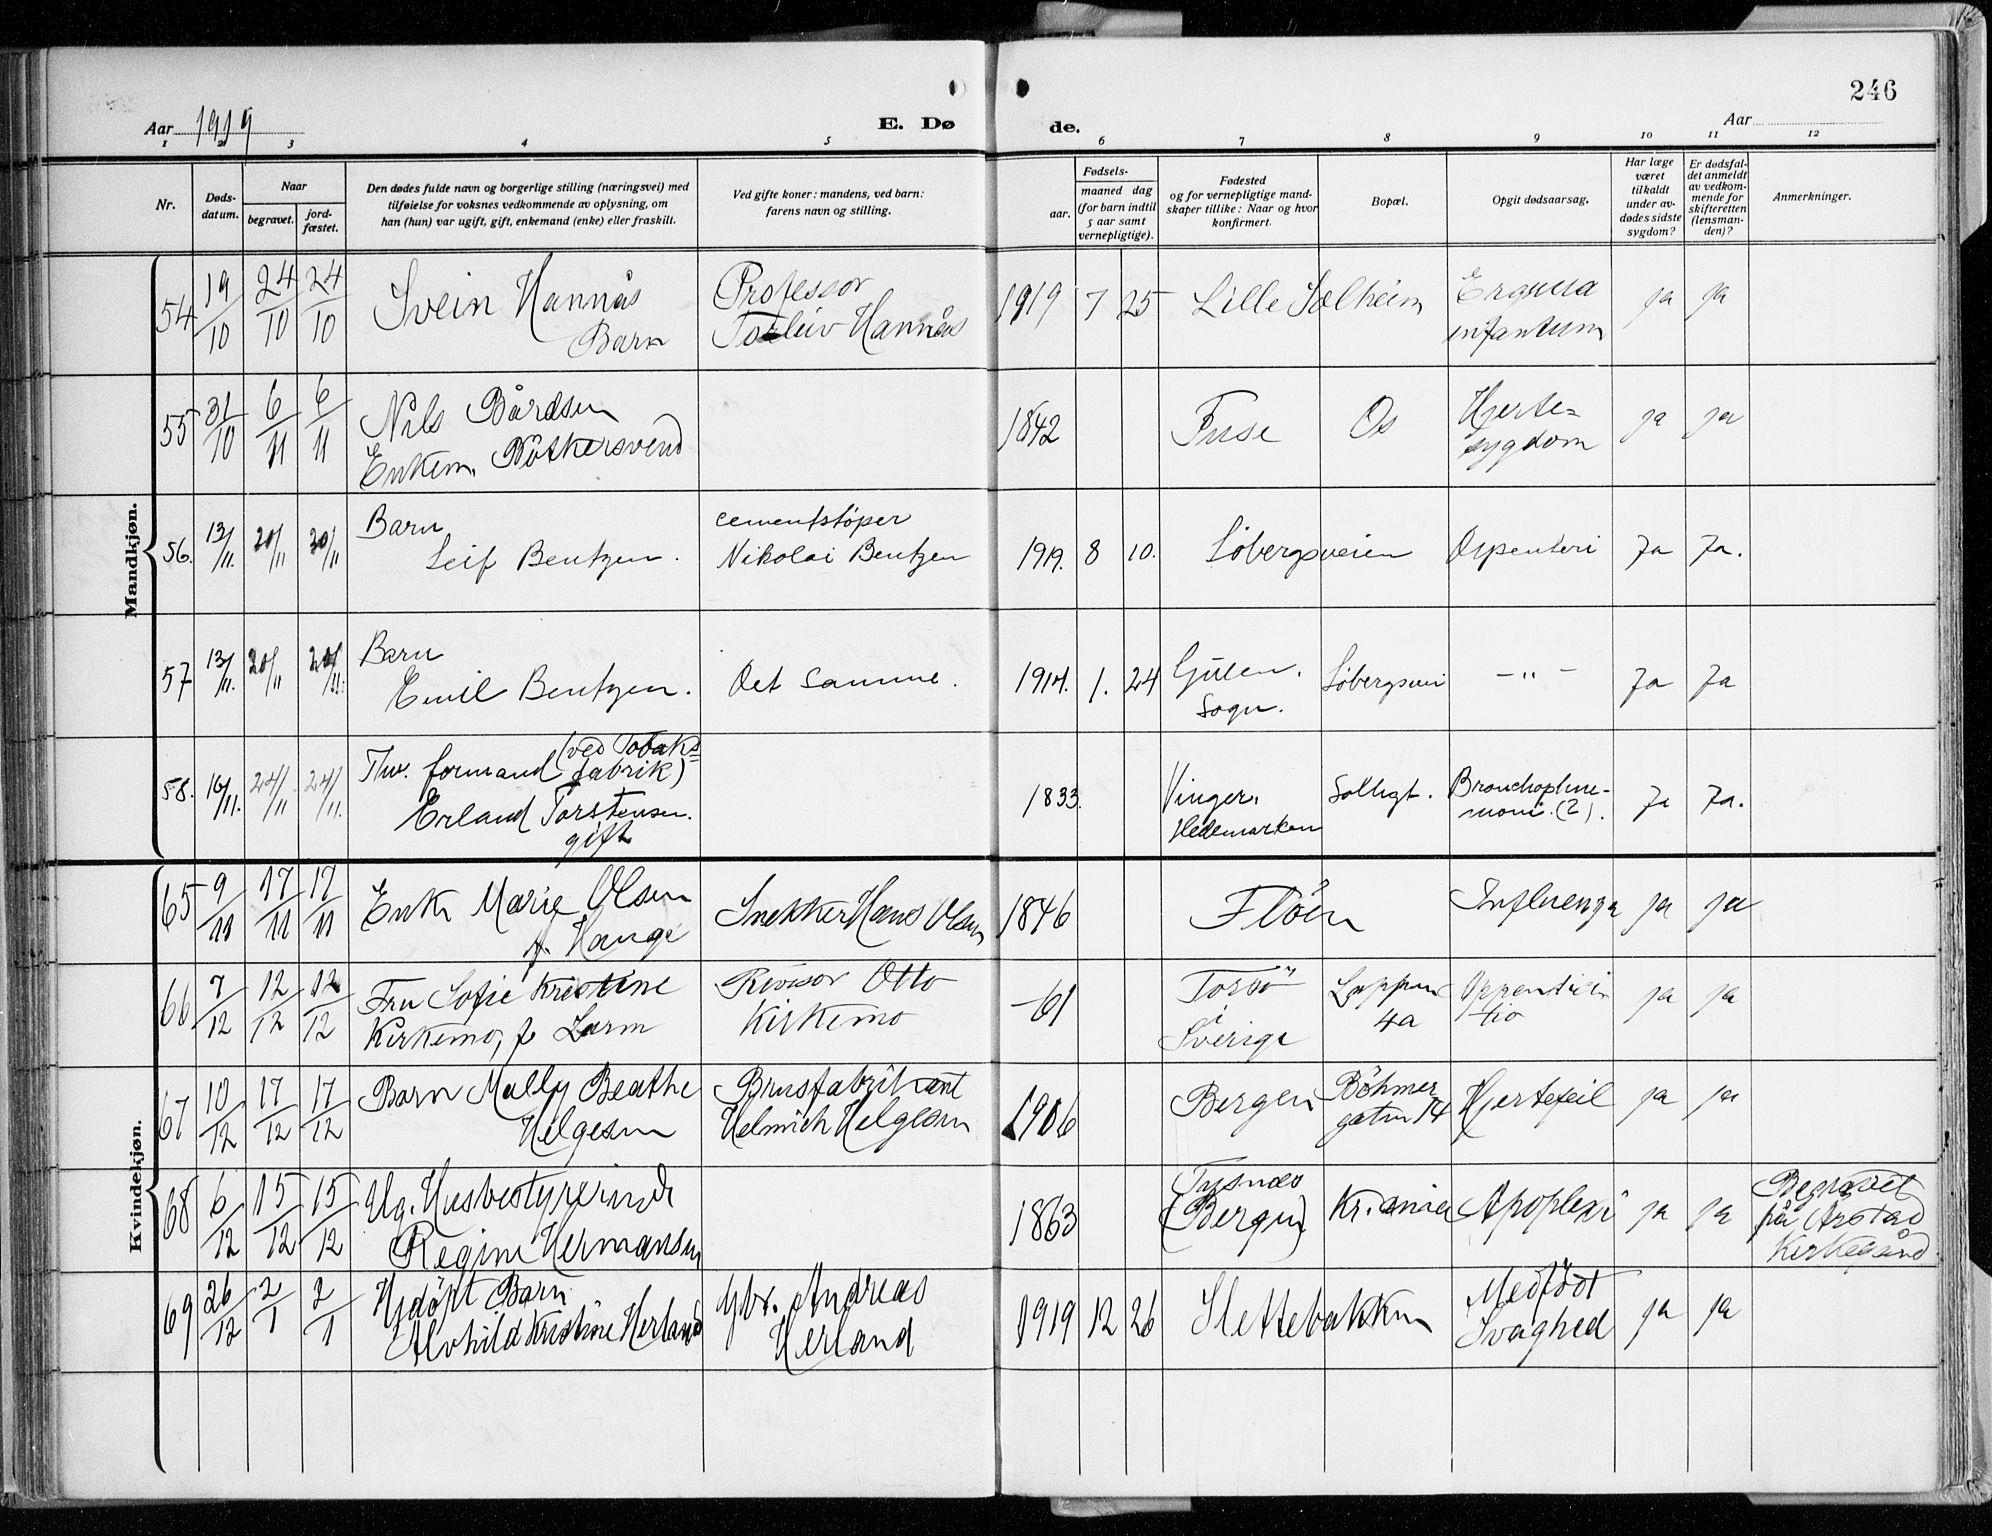 246
Aar 1919
E. Dø
de.
Aar
1 2 3 4 5 6 7 8 9 10 11 12
Nr.
Døds-
datum.
Naar
begravet.
jord-
fæstet.
Den dødes fulde navn og borgerlige stilling (næringsvei) med
tilføielse for voksnes vedkommende av oplysning, om
han (hun) var ugift, gift, enkemand (enke) eller fraskilt.
Ved gifte koner: mandens, ved barn:
farens navn og stilling.
Fødsels-
aar.
maaned dag
(for barn indtil
5 aar samt
vernepligtige).
Fødested
og for vernepligtige mand-
skaper tillike: Naar og hvor
konfirmert.
Bopæl.
Opgit dødsaarsag.
Har læge
været
tilkaldt
under av-
dødes sidste
sygdom?
Er dødsfal-
det anmeldt
av vedkom-
mende for
skifteretten
(lensman-
den)?
Anmerkninger.
Mandkjøn.
54 19/10 24/10 24/10 Svein Hannås Professor 1919 7 25 Lille Solheim ja ja
Barn Torleiv Hannås infantum
55 31/10 6/11 6/11 Nils Bårdsen 1842 Fuse Os Hjerte= ja ja
Enkem. Bøtkersvend sygdom
56. 13/11. 20/11 20/11 Barn cementstøper
Leif Bentzen. Nikolai Bentzen 1919. 8 10. Løbergsveien Ja Ja.
57 13/11. 20/11 20/11. Barn
Emil Bentzen. Det samme. 1914. 1. 24 Gulen. Løbergsvei –"– Ja Ja
Sogn.
58. 16/11. 24/11 24/11. Fhv. formand (ved Tobaks=
fabrik) 1833. Vinger, Solligt. Ja Ja.
Erland Torstensen. Hedemarken (?).
gift
Kvindekjøn.
65 9/11 17/11 17/11 Enke Marie Olsen Snekker Hans Olsen 1846 Fløen Influenza ja ja
f. Hauge
66 7/12 12/12 12/12 Fru Sofie Kristine Revisor Otto –61 Torsö ja ja
Kirkemo, f. Kirkemo i 4a
Sverige
67 10/12 17/12 17/12 Barn Molly Beathe Brusfabrikant 1906 Bergen Böhmer Hjertefeil ja ja
Helgesen Helmich Helgesen gaten 14
68 6/12 15/12 15/12 Ug. Husbestyrerinde 1863 Tysnes Kr.ania Apoplexi ja ja Begravet
Regine Hermansen (Bergen) på Årstad
Kirkegård
69 26/12 2/1 2/1 Hjdøpt Barn Gbr. Andreas 1919 12 26 Slettebakken Medfødt ja ja
Alvhild Kristine Herland Herland Svaghed